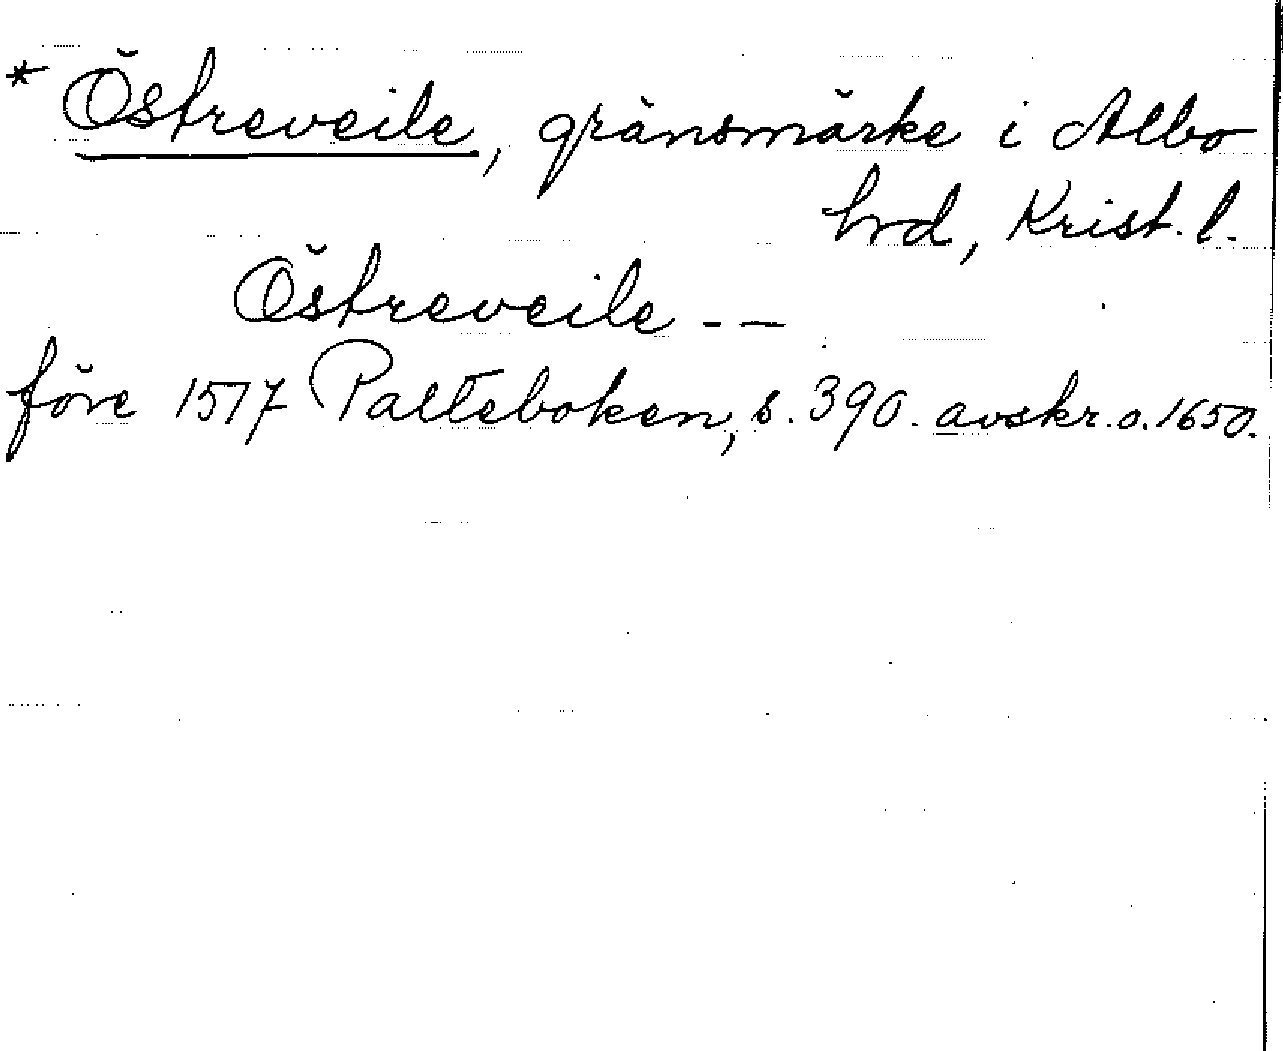 * Östreveile, gränsmärke i Albo
hrd, Krist. l.
Östreveile - -
före 1517 Palteboken, s. 390. avskr. o. 1650.